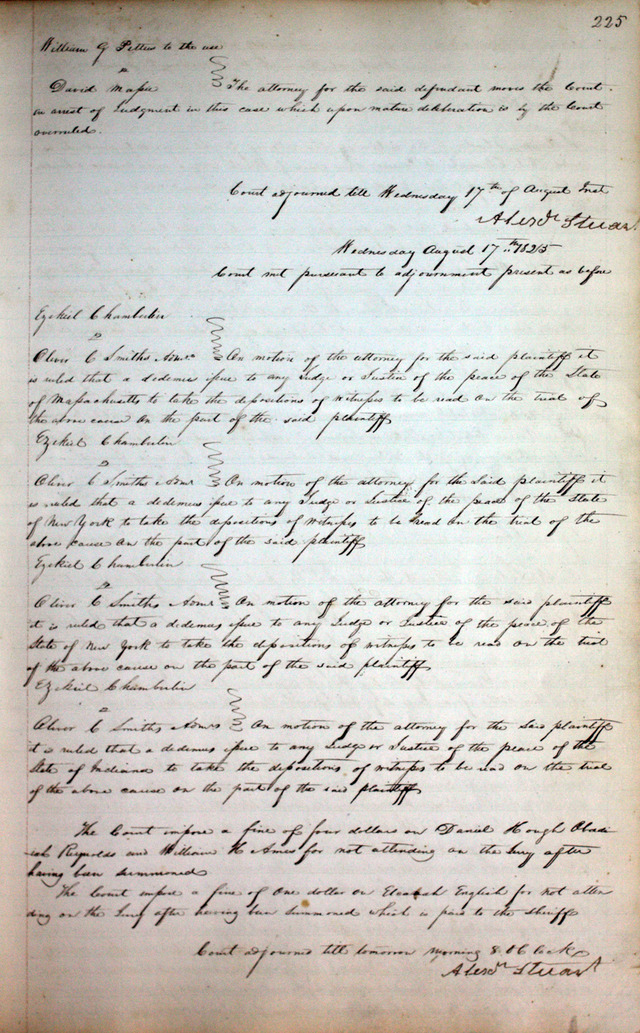 225
William G Pettus to the use
vs
David Massie The attorney for the said defendant moves the Court
in arrest of Judgment in this case which upon mature deliberation is by the Court
overruled.
Court adjourned till Wednesday 17th of August Inst
Alexdr Stuart
Wednesday August 17th 1825
Court met pursuant to adjournment present as before
Ezekiel Chamberlin
vs
Oliver C Smiths Admrs On motion of the attorney for the said plaintiff it
is ruled that a dedemus issue to any Judge or Justice of the peace of the State
of Massachusetts to take the depositions of witnesses to be read on the trial of
the above cause on the part of the said plaintiff
Ezekiel Chamberlin
vs
Oliver C Smiths Admrs On motion of the attorney for the said plaintiff it
is ruled that a dedemus issue to any Judge or Justice of the peace of the State
of New York to take the depositions of witnesses to be read on the trial of the
above cause on the part of the said plaintiff
Ezekiel Chamberlin
vs
Oliver C Smiths Admrs On motion of the attorney for the said plaintiff
it is ruled that a dedemus issue to any Judge or Justice of the peace of the
State of New York to take the depositions of witnesses to be read on the trial
of the above cause on the part of the said plaintiff
Ezekiel Chamberlin
vs
Oliver C Smiths Admrs On motion of the attorney for the said plaintiff
it is ruled that a dedemus issue to any Judge or Justice of the peace of the
State of Indiana to take the depositions of witnesses to be read on the trial
of the above cause on the part of the said plaintiff
The Court impose a fine of four dollars on Daniel Hough Obadi
iah Reynolds and William H Ames for not attending on the Jury after
having been summoned
The Court impose a fine of One dollar on English for not atten
ding on the Jury after having been summoned which is paid to the sheriff
Court adjourned till tomorrow morning 8 O Clock
Alexdr Stuart